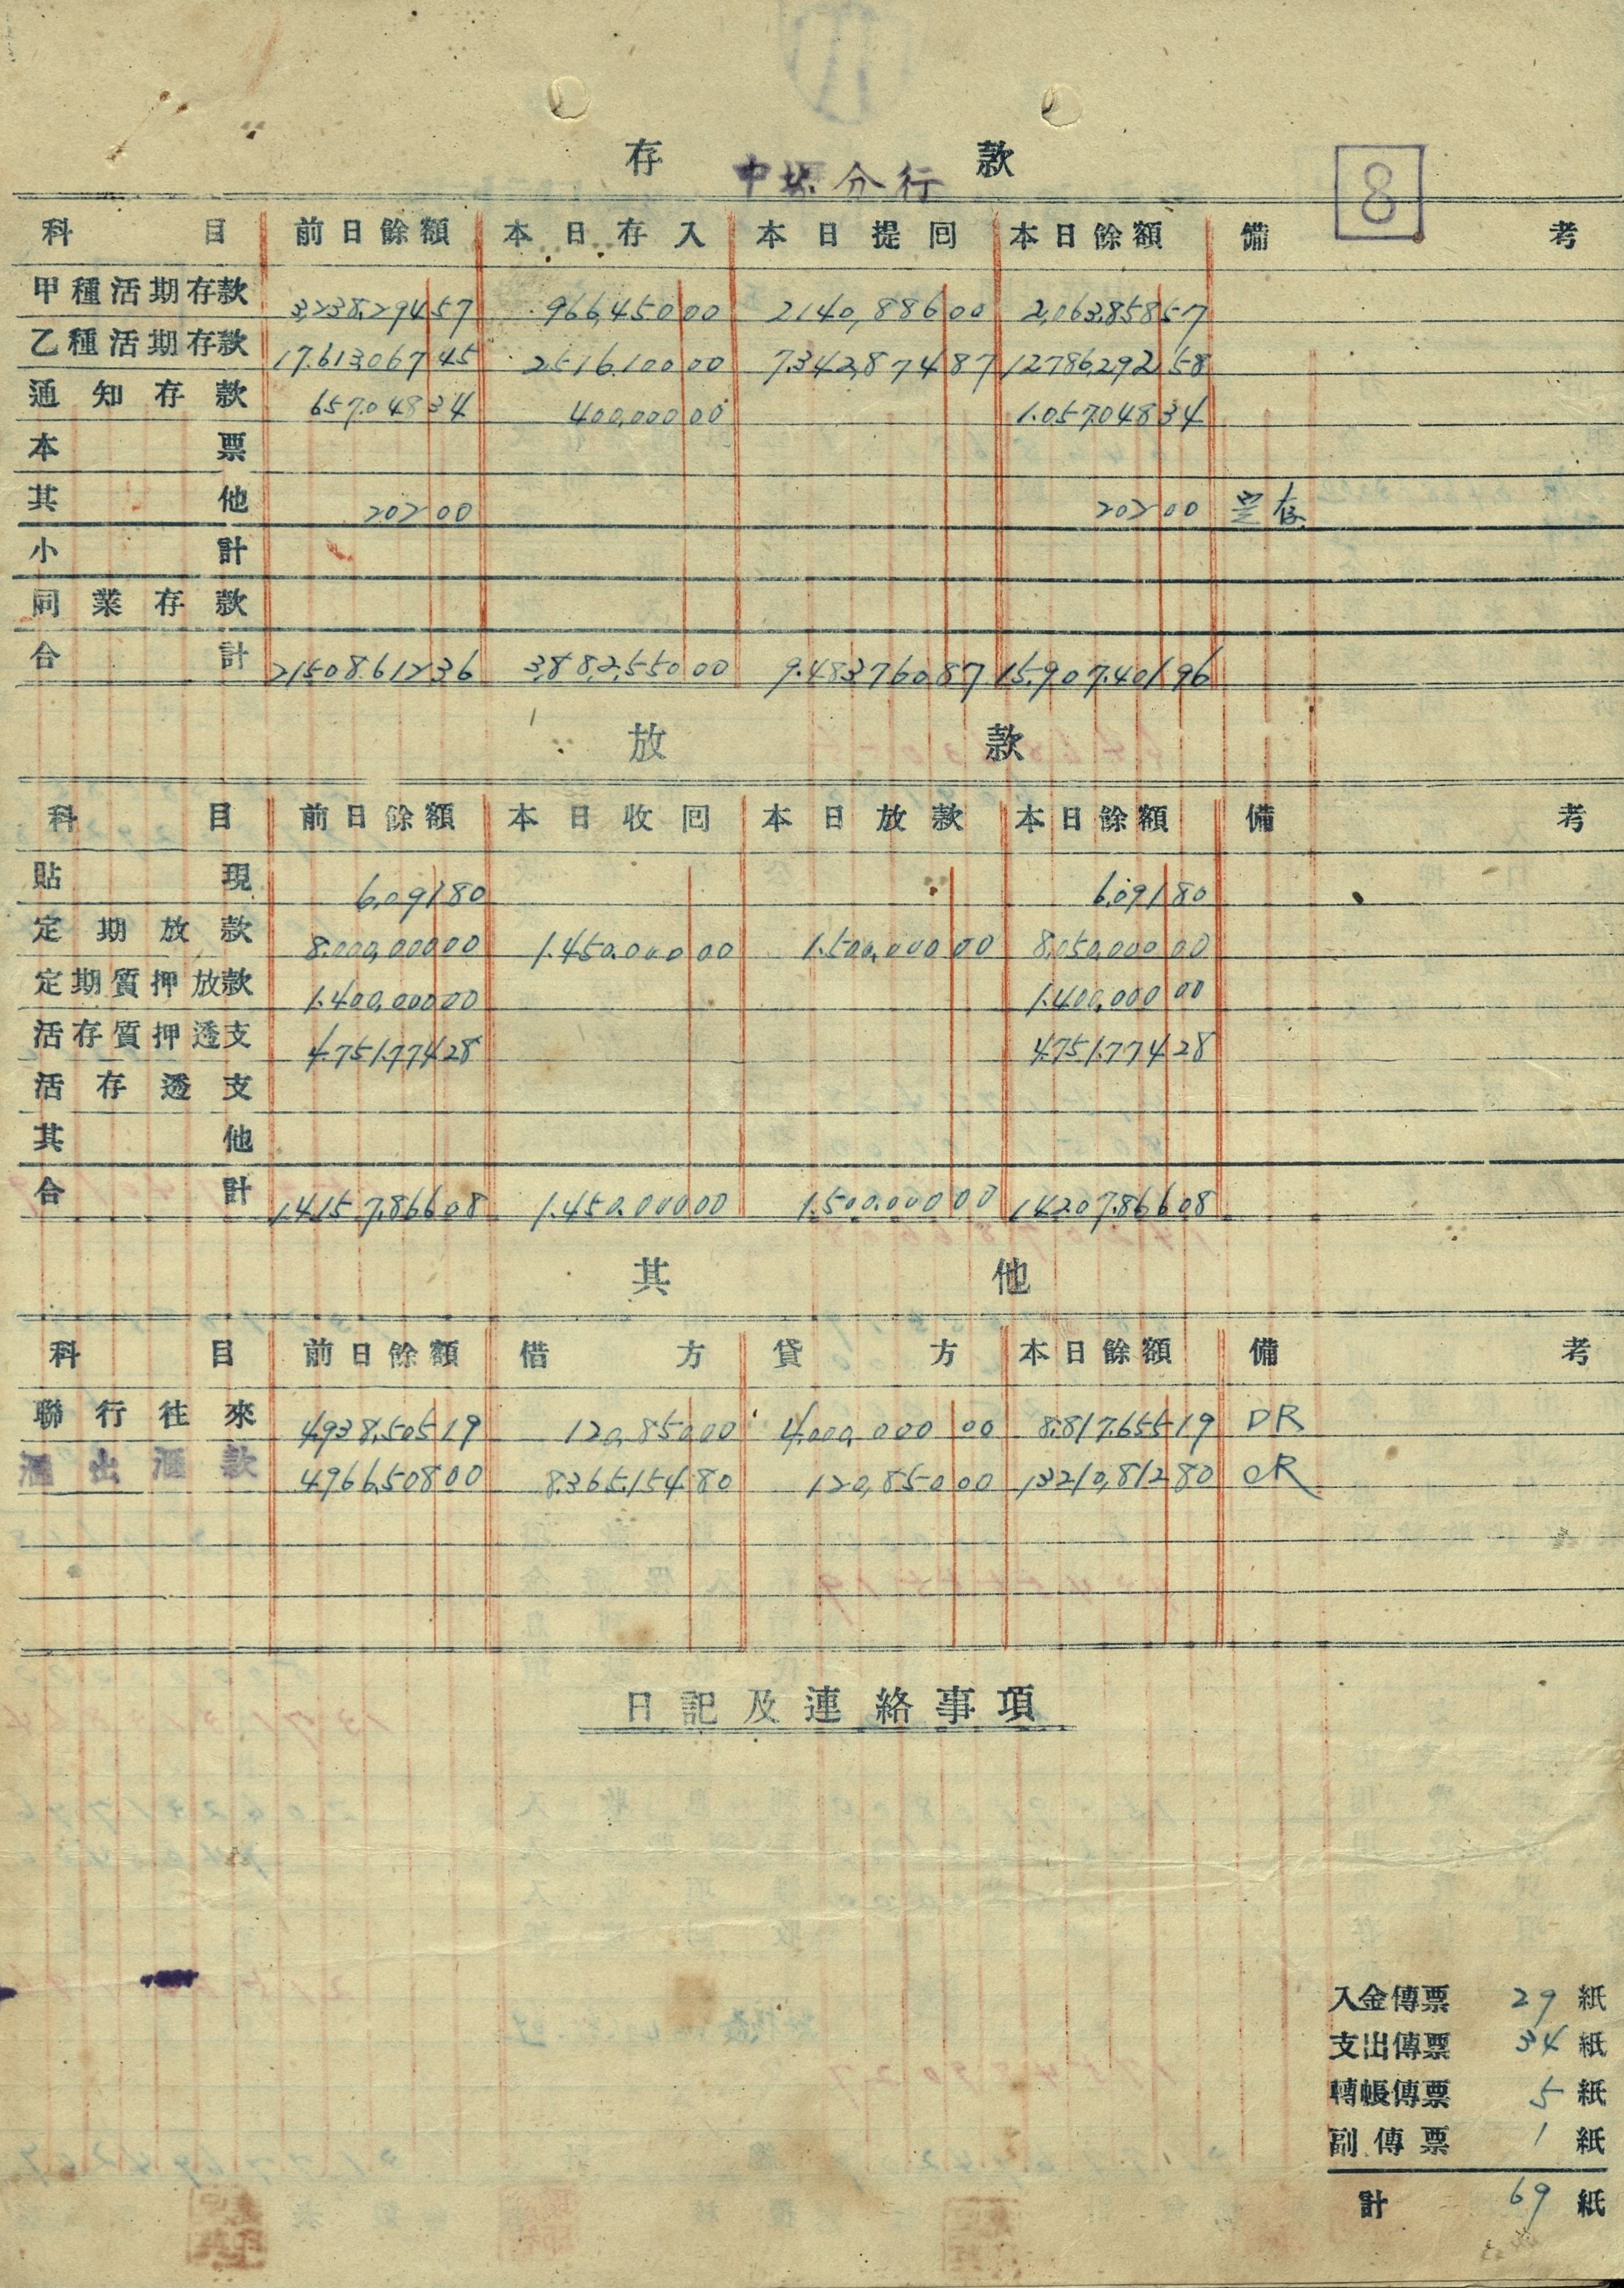 存款
中壢分行
8
科目 前日餘額 本日存入 本日提回 本日餘額 備考
甲種活期存款 3,238,294 57 966,450 00 2,140,886 00 2,063,858 57
乙種活期存款 17,613,067 45 2,516,100 00 7,342,874 87 12,786,292 58
通知存款 657,048 34 400,000 00 1,057,048 34
本票
其他 202 00 202 00 定存
小計
同業存款
合計 21,508,612 36 3,882,550 00 9,483,760 87 15,907,401 96
放款
科目 前日餘額 本日收回 本日放款 本日餘額 備考
貼現 6,091 80 6,091 80
定期放款 8,000,000 00 1,450,000 00 1,500,000 00 8,050,000 00
定期質押放款 1,400,000 00 1,400,000 00
活存質押透支 4,751,774 28 4,751,774 28
活存透支
其他
合計 14,157,866 08 1,450,000 00 1,500,000 00 14,207,866 08
其他
科目 前日餘額 借方 貸方 本日餘額 備考
聯行往來 4,938,505 19 120,850 00 4,000,000 00 8,817,655 19 DR
匯出匯款 4,966,508 00 8,365,154 80 120,850 00 13,210,812 80 CR
日記及連絡事項
入金傳票 29 紙
支出傳票 34 紙
轉帳傳票 5 紙
副傳票 1 紙
計 69 紙